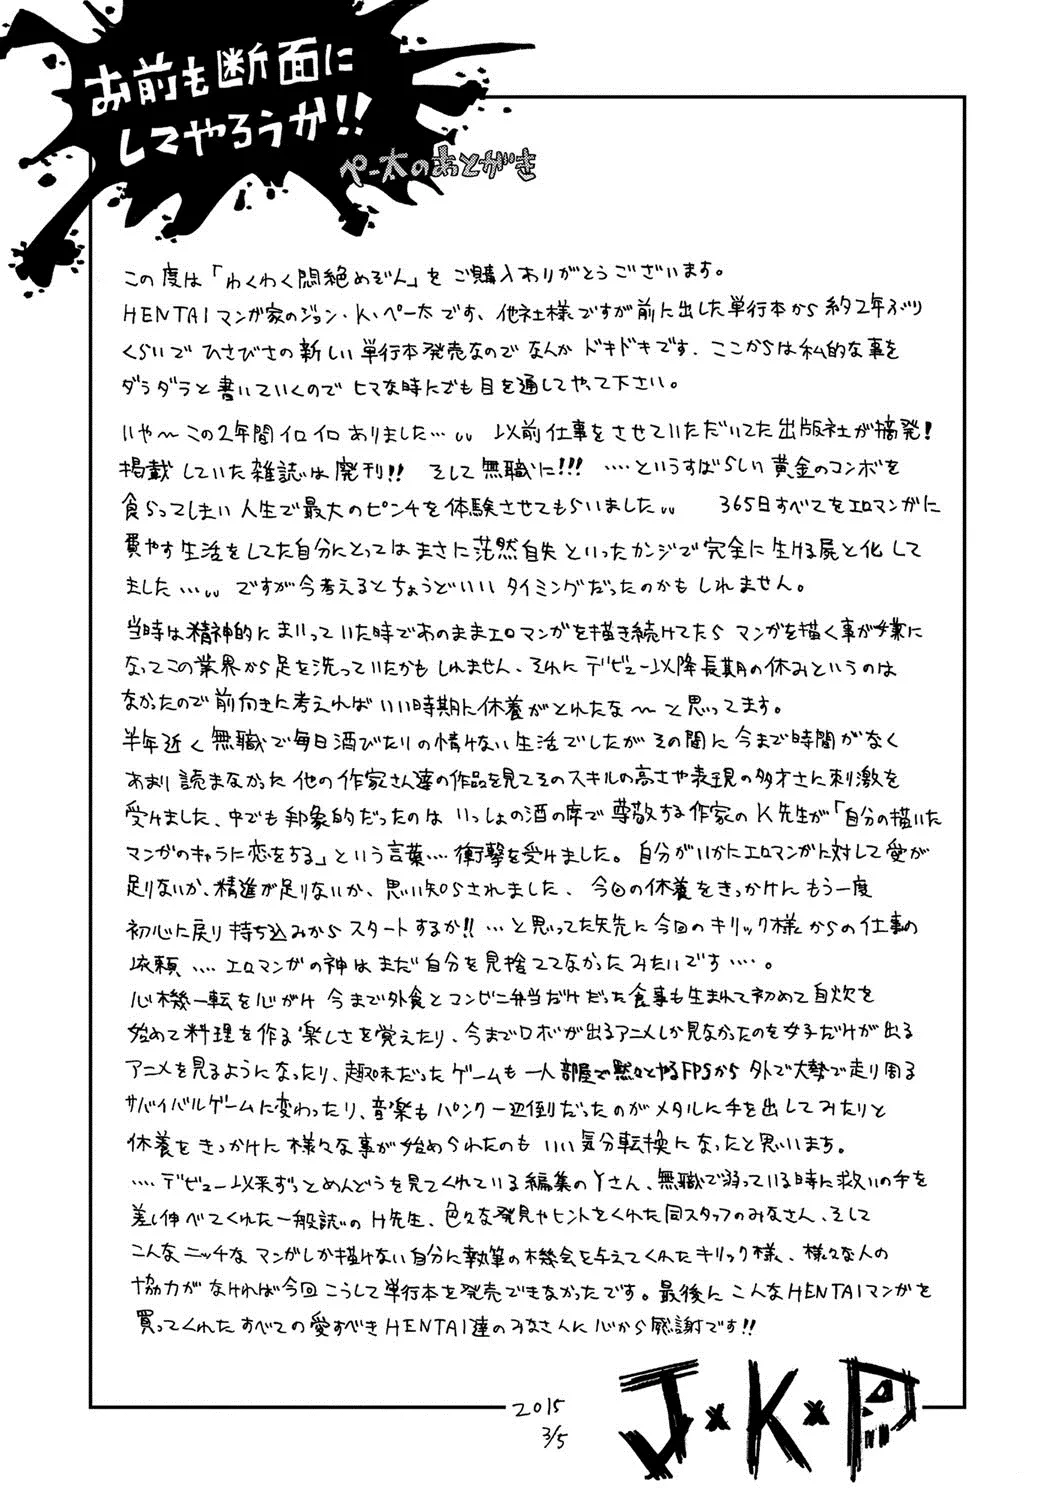 お前も断面に
してやろうか!!
ペー太のあとがき
この度は「わくわく悶絶めぞん」をご購入ありがとうございます。
HENTAIマンガ家のジョン・K・ペー太です、他社様ですが前に出した単行本から約2年ぶり
くらいでひさびさの新しい単行本発売なのでなんかドキドキです、ここからは私的な事を
ダラダラと書いていくのでヒマな時にでも目を通してやって下さい。
いや〜この2年間イロイロありました…、、 以前仕事をさせていただいてた出版社が摘発!
掲載していた雑誌は廃刊!! そして無職に!!! ‥‥というすばらしい黄金のコンボを
食らってしまい人生で最大のピンチを体験させてもらいました、、 365日すべてをエロマンガに
費やす生活をしてた自分にとってはまさに茫然自失といったカンジで完全に生ける屍と化して
ました…、、 ですが今考えるとちょうどいいタイミングだったのかもしれません。
当時は精神的にまいっていた時であのままエロマンガを描き続けてたらマンガを描く事が嫌に
なってこの業界から足を洗っていたかもしれません、それにデビュー以降長期の休みというのは
なかったので前向きに考えればいい時期に休養がとれたな〜と思ってます。
半年近く無職で毎日酒びたりの情けない生活でしたがその間に今まで時間がなく
あまり読まなかった他の作家さん達の作品を見てそのスキルの高さや表現の多才さに刺激を
受けました、中でも印象的だったのはいっしょの酒の席で尊敬する作家のK先生が「自分の描いた
マンガのキャラに恋をする」という言葉‥‥衝撃を受けました。自分がいかにエロマンガに対して愛が
足りないか、精進が足りないか、思い知らされました、今回の休養をきっかけにもう一度
初心に戻り持ち込みからスタートするか!! …と思ってた矢先に今回のキリック様からの仕事の
依頼‥‥エロマンガの神はまだ自分を見捨ててなかったみたいです‥‥。
心機一転を心がけ今まで外食とコンビニ弁当だけだった食事も生まれて初めて自炊を
始めて料理を作る楽しさを覚えたり、今までロボが出るアニメしか見なかったのを女子だけが出る
アニメを見るようになったり、趣味だったゲームも一人部屋で黙々とやるFPSから外で大勢で走り周る
サバイバルゲームに変わったり、音楽もパンク一辺倒だったのがメタルに手を出してみたりと
休養をきっかけに様々な事が始められたのもいい気分転換になったと思います。
‥‥デビュー以来ずっとめんどうを見てくれている編集のYさん、無職で弱っている時に救いの手を
差し伸べてくれた一般誌のH先生、色々な発見やヒントをくれた同スタッフのみなさん、そして
こんなニッチなマンガしか描けない自分に執筆の機会を与えてくれたキリック様、様々な人の
協力がなければ今回こうして単行本を発売できなかったです。最後にこんなHENTAIマンガを
買ってくれたすべての愛すべきHENTAI達のみなさんに心から感謝です!!
2015
3/5
J×K×P